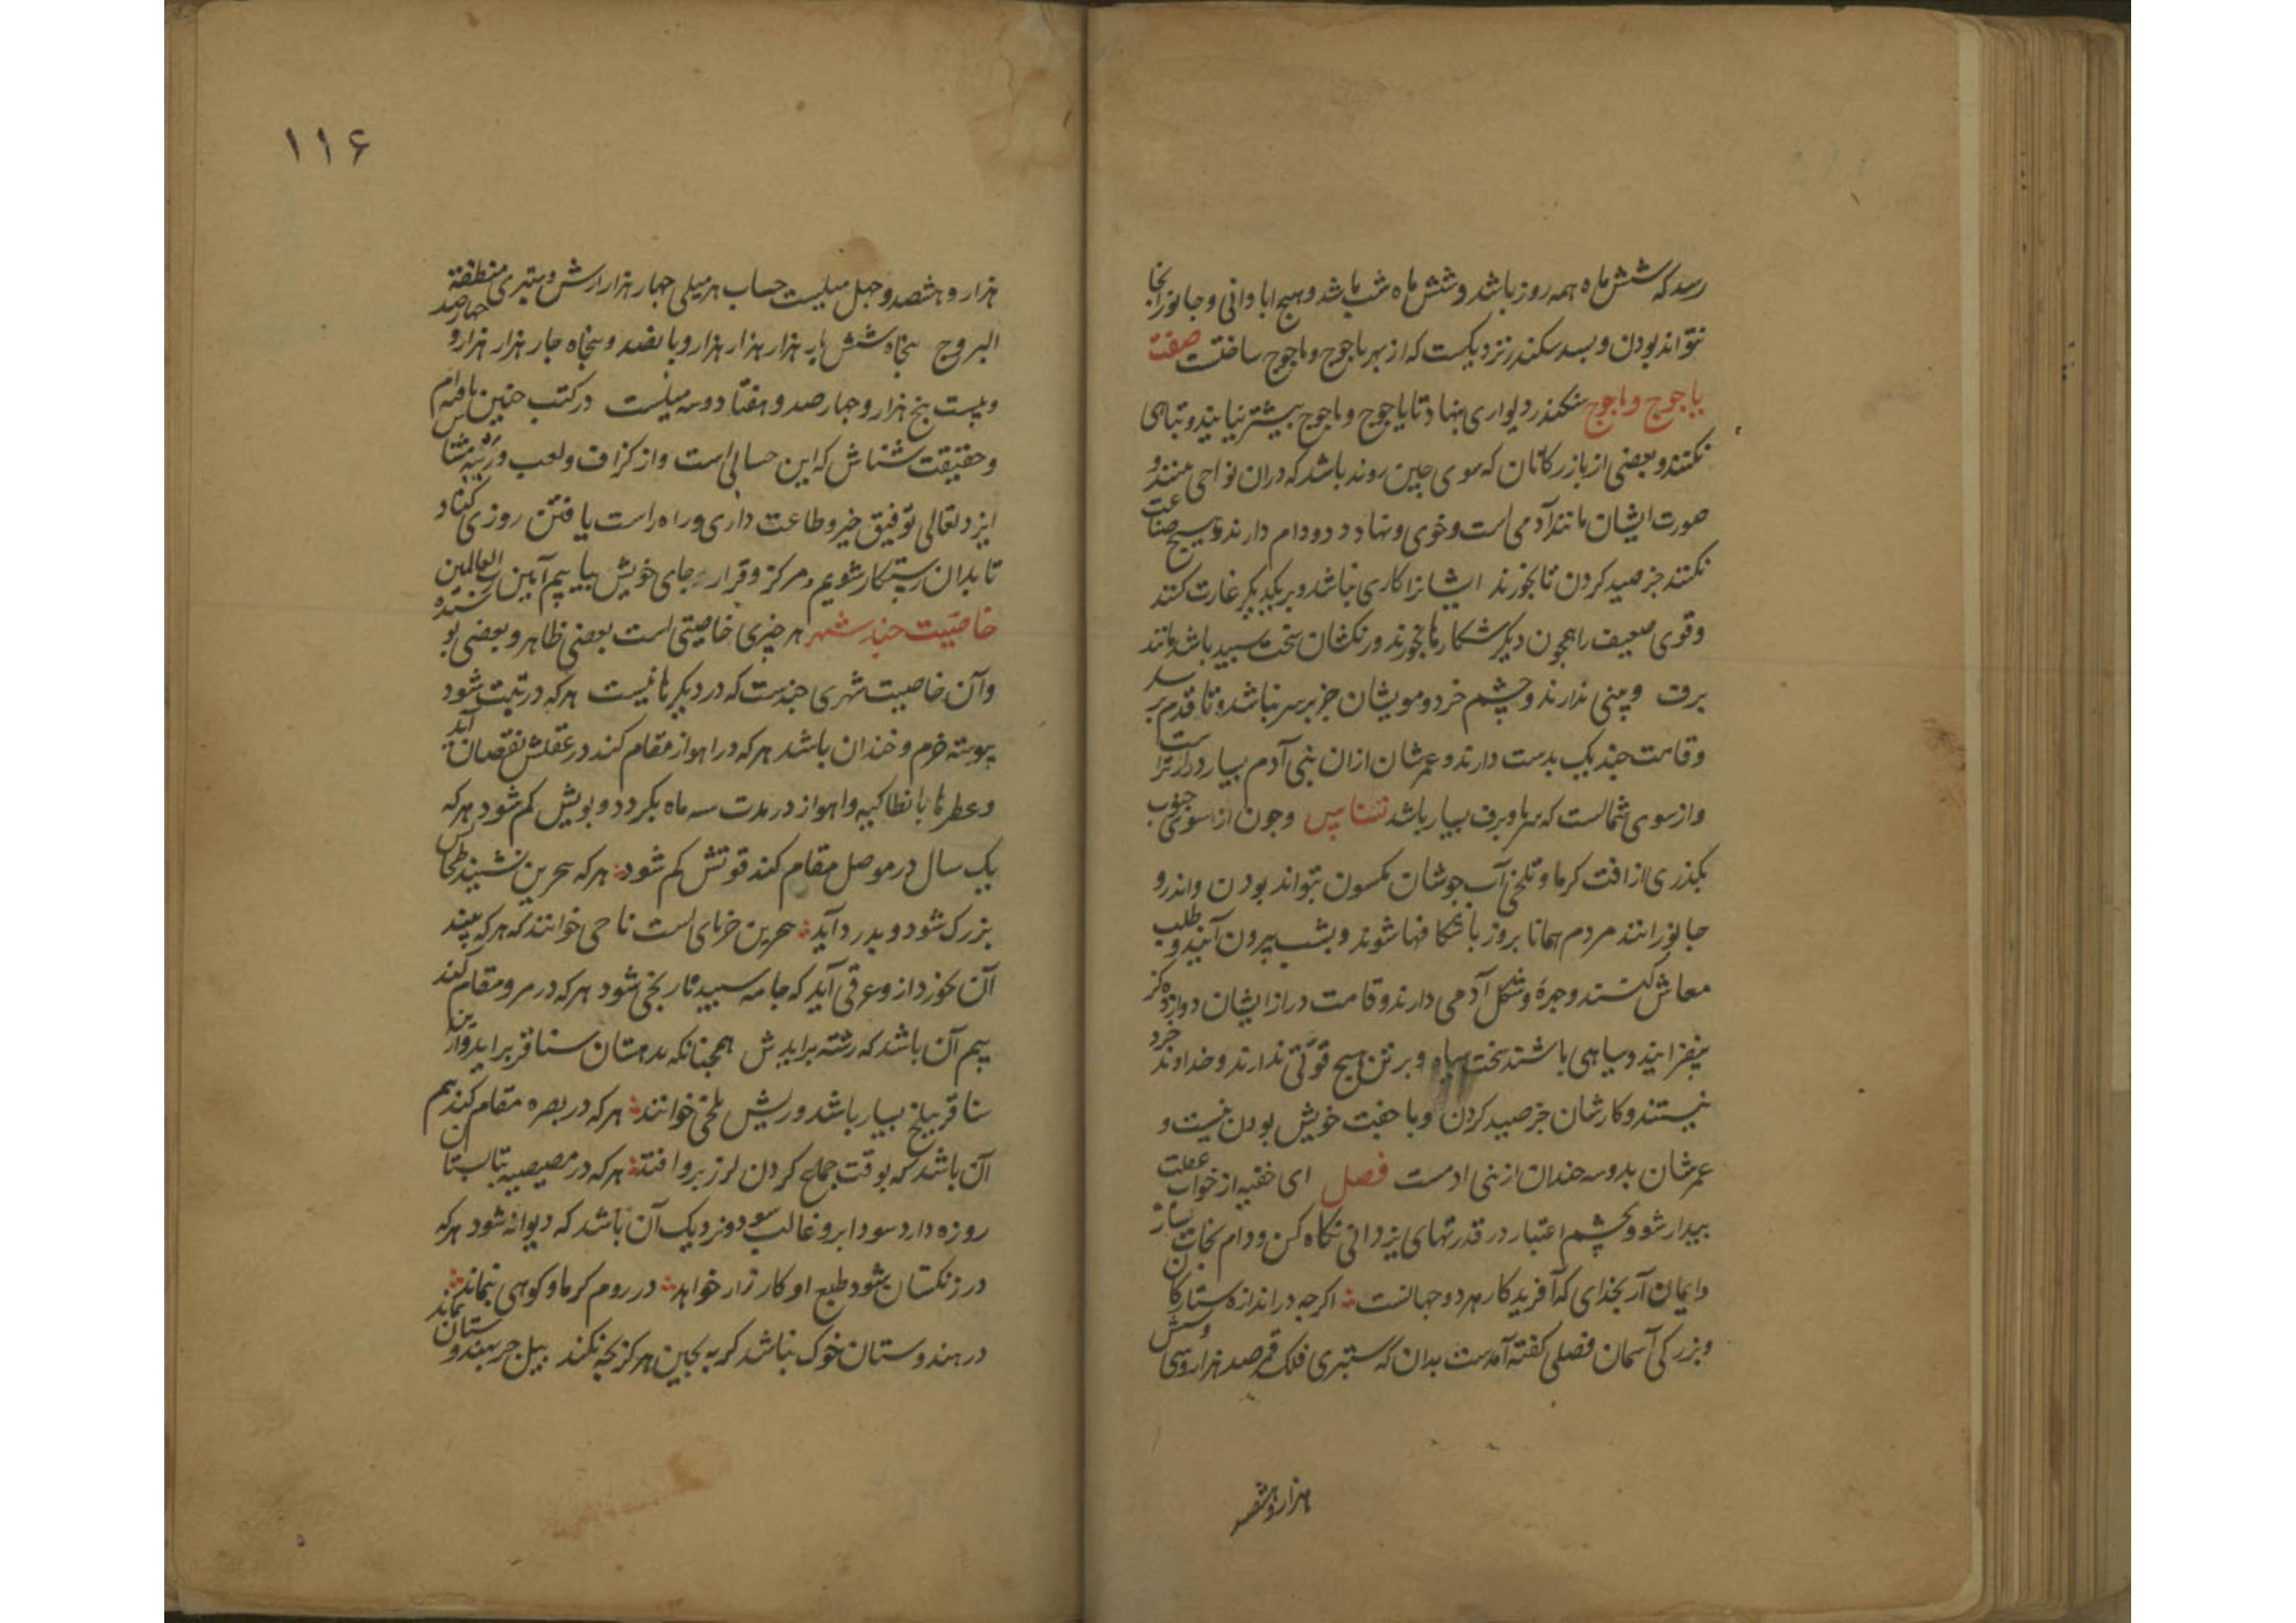 رسد که شش ماه همه روز باشد و شش ماه شب باشد و هیچ ابادانی و جانور انجا
نتواند بودن و بسد سکندر نزدیکست که از بهر یاجوج و ماجوج ساختست صفت
یاجوج و ماجوج سکندر دیواری بنهاد تا یاجوج و ماجوج بیشتر نیایند و تباهی
نکنند و بعضی از بازرکانان که سوی چین روند باشد که دران نواحی بینند و
صورت ایشان مانند آدمی است و خوی و نهاد دد و دام دارند و هیچ صناعت
نکنند جز صید کردن تا بخورند ایشانرا کاری نباشد و بر یکدیکر غارت کنند
و قوی ضعیف را همچون دیکر شکارها بخورند و رنکشان سخت سپید باشد مانند
برف و بینی ندارند و چشم خرد و مویشان جز بر سر نباشد و تا قدم بر
و قامت چند یک بدست دارند و عمرشان ازان بنی آدم بسیار درازتر است
و از سوی شمالست که سرما و برف بسیار باشد نسناس و چون از سوی جنوب
بکذری از افت کرما و تلخی آب جوشان مسکون نتواند بودن و اندرو
جانورانند مردم همانا بروز با شکافها شوند و بشب بیرون آیند و طلب
معاش کنند و چهره و شکل آدمی دارند و قامت دراز ایشان دوازده کز
بیفزایند و سیاهی باشند سخت سیاه و بر تن هیچ قوتی ندارند و خداوند خرد
نیستند و کارشان جز صید کردن و با جفت خویش بودن نیست و
عمرشان بدو سه چندان از بنی ادمست فصل ای خفته از خواب غفلت
بیدار شو و بچشم اعتبار در قدرتهای یزدانی نکاه کن و دام نجات بساز
و ایمان آر بخدای که آفریدکار هر دو جهانست اکرچه در اندازه ستارکان
و بزرکی آسمان فصلی کفته آمدست بدان که ستبری فلک قمر صد هزار و سی و شش
هزار و هشصد
۱۱۶
هزار و هشصد و چهل میلیست حساب هر میلی چهار هزار ارش و ستبری منطقة
البروج پنجاه شش بار هزار هزار هزار و پانصد و پنجاه چار هزار هزار و چهارصد
و بیست پنج هزار و چهارصد و هفتاد و سه میلست در کتب چنین یافته‌ام
و حقیقت شناس که این حسابی است و از کزاف و لعب و
ایزد تعالی توفیق خیر و طاعت داری و راه راست یافتن روزی کناد
تا بدان رستکار شویم و مرکز و قرار جای خویش بیابیم آمین العالمین
خاصیت چند شهر هر چیزی خاصیتی است بعضی ظاهر و بعضی پوشیده
و آن خاصیت شهری چندست که در دیکرها نیست هرکه در تبت شود
پیوسته خرم و خندان باشد هرکه در اهواز مقام کند در عقلش نقصان آید
و عطرها بانطاکیه و اهواز در مدت سه ماه بکردد و بویش کم شود هرکه
یک سال در موصل مقام کند قوتش کم شود هرکه ببحرین نشیند طحالش
بزرک شود و بدرد آید ببحرین خرمای است ناحی خوانند که هرکه نبیند
آن بخورد ازو عرقی آید که جامه سپید نارنجی شود هرکه در مرو مقام کند
بیم آن باشد که رشته برایدش همچنانکه بدهستان سناقر براید و از
سناقر ببلخ بسیار باشد و ریش بلخی خوانند هرکه در بصره مقام کند بیم
آن باشد که بوقت جماع کردن لرز برو افتد هرکه در مصیصیه بتابستان
روزه دارد سودا برو غالب شود و نزدیک آن باشد که دیوانه شود هرکه
در زنکستان شود طبع او کارزار خواهد در روم کرما و کوهی نماند
در هندوستان خوک نباشد کربه بچین هرکز بچه نکند پیل جز بهندوستان نماند